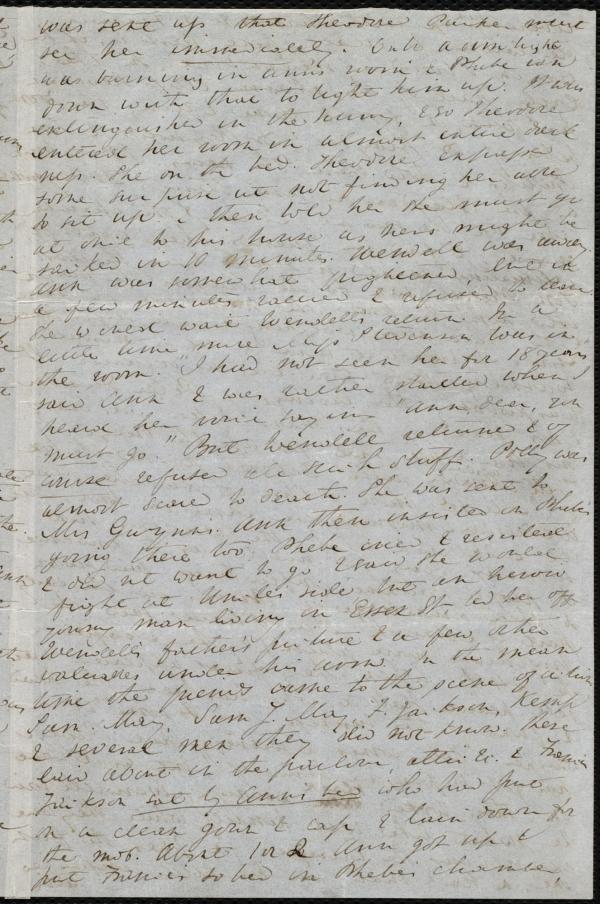 was sent up that Theodore Parker must
see her immediately. Only a dim light
was burning in Ann's room & Phebe ran
down with that to light him up. It was
extinguished in the hurry, & so Theodore
entered her room in almost entire dark
ness. She on the bed. Theodore expressed
some surprise at not finding her able
to sit up & then told her she must go
at once to his house as hers might be
sacked in 10 minutes. Wendell was away.
Ann was somewhat frightened, but in
a few minutes rallied & refused to leave.
She would wait Wendell's return. In a
little time more Miss Stevenson was in
the room. "I had not seen her for 18 years
said Ann & was rather startled when I
heard her voice saying "Ann dear, you
must go." But Wendell returned & of
course refused all such stuff. Polly was
almost scared to death. She was sent to
Mrs Gwynns. Ann then insisted on Phebe's
going there too. Phebe cried & resisted
& did not want to go & said she would
fight at Uncle's side but an heroic
young man living in Essex St. led her off
Wendell's father's picture & a few other
valuables under his arm. In the mean
time the friends came to the scene of action
Sam. May, Sam J. May, F. Jackson, Kemp
& several men they did not know. These
laid about in the parlour, attic &c. & Francis
Jackson sat by Ann's bed who had put
on a clean gown & cap & laid down for
the mob. About 1 or 2 Ann got up &
put Francis to bed in Phebe's chamber,